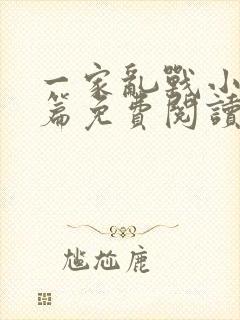 一家亂戰小
篇免費閱讀
尷尬鹿